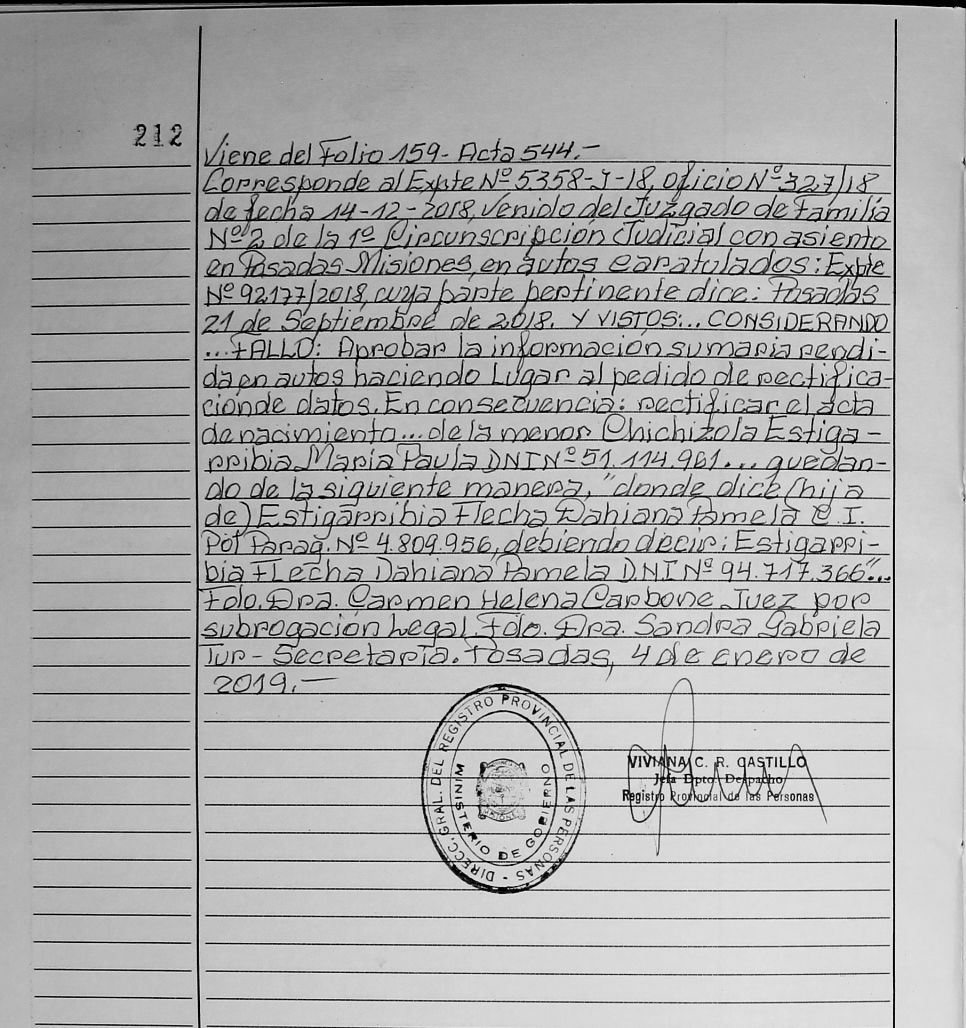 212
Viene del Folio 159- Acta 544.-
Corresponde al Expte Nº 5358-J-18, oficio Nº 327/18
de fecha 14-12-2018, venido del Juzgado de Familia
Nº 2 de la 1º Circunscripción Judicial con asiento
en Posadas Misiones, en autos caratulados: Expte
Nº 92177/2018, cuya parte pertinente dice: Posadas
21 de Septiembre de 2.018. Y VISTOS:.. CONSIDERANDO
...FALLO: Aprobar la información sumaria rendi-
da en autos haciendo Lugar al pedido de rectifica-
ción de datos. En consecuencia: rectificar el acta
de nacimiento... de la menor Chichizola Estiga-
rribia María Paula DNI Nº 51.114.961... quedan-
do de la siguiente manera, "donde dice (hija
de) Estigarribia Flecha Dahiana Pamela C.I.
Pol Parag. Nº 4.809.956, debiendo decir: Estigarri-
bia Flecha Dahiana Pamela DNI Nº 94.717.366"...
Fdo. Dra. Carmen Helena Carbone Juez por
subrogación Legal. Fdo. Dra. Sandra Gabriela
Tur- Secretaria. Posadas, 4 de enero de
2019.-
DIRECC. GRAL. DEL REGISTRO PROVINCIAL DE LAS PERSONAS -
MINISTERIO DE GOBIERNO
VIVIANA C. R. CASTILLO
Jefa Dpto Despacho
Registro Provincial de las Personas